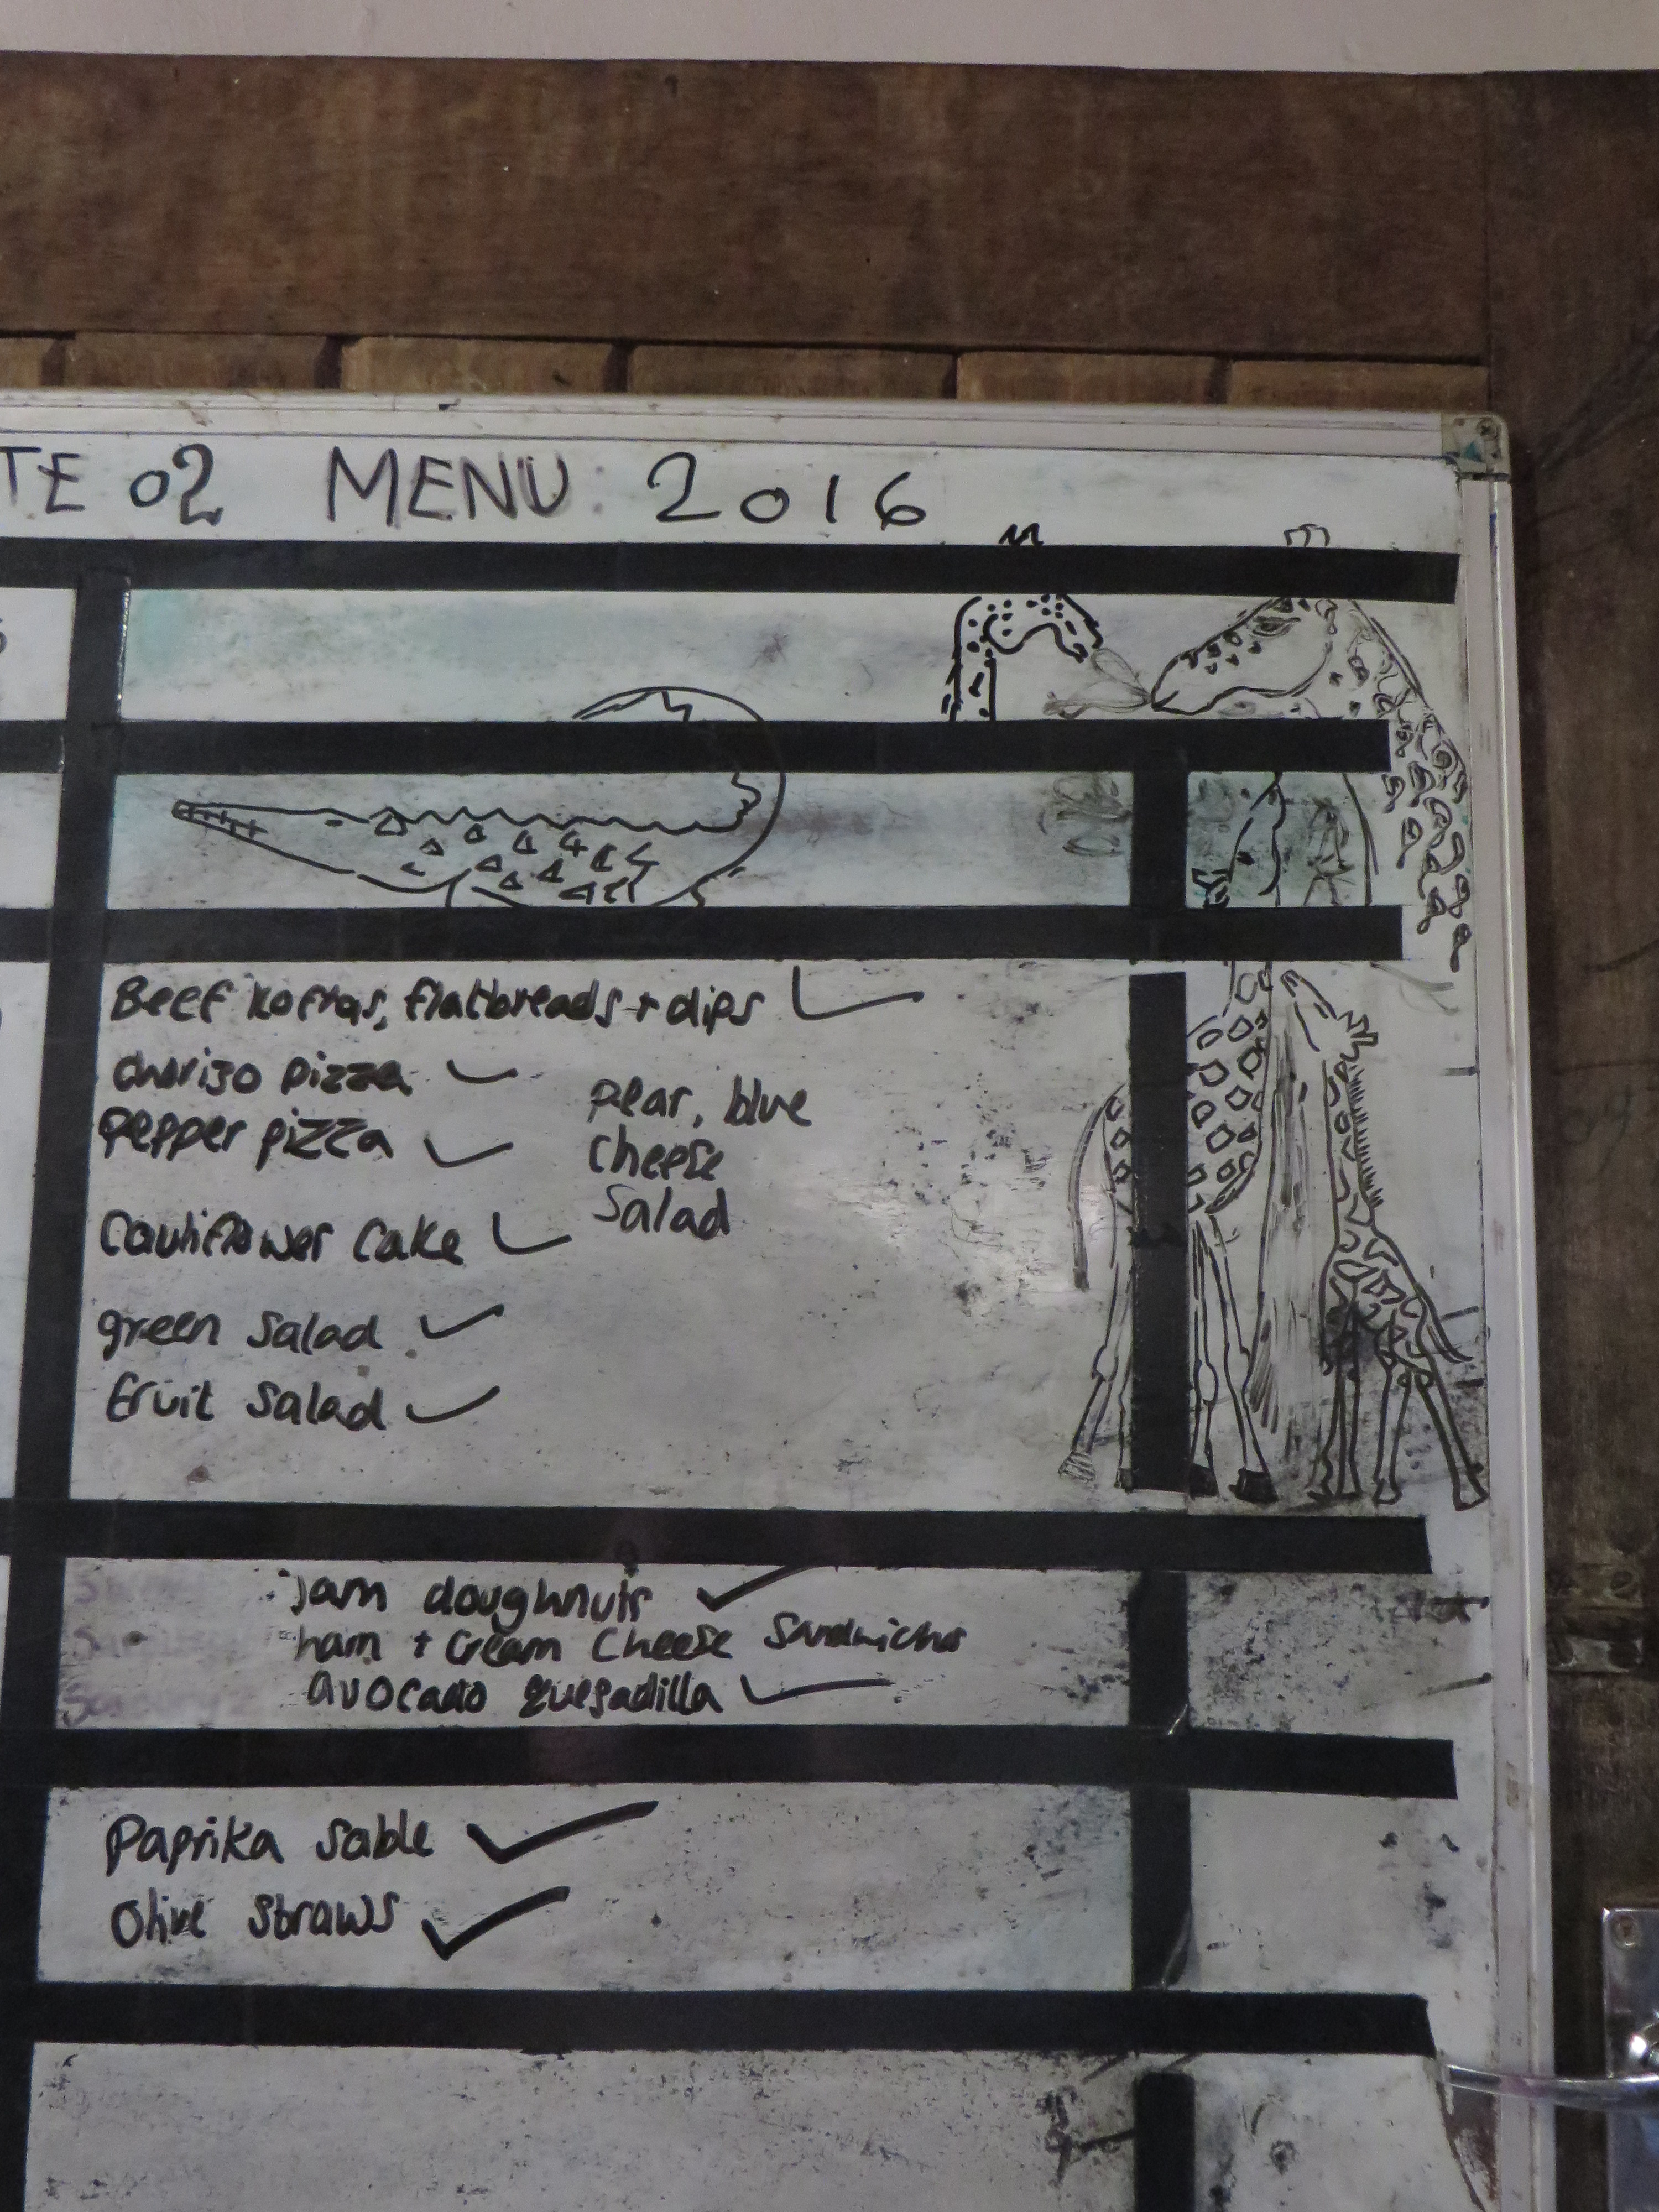 TE 02 MENU: 2016
Beef koftas, flatbreads + dips
chorizo pizza
pepper pizza
pear, blue
cheese
salad
Cauliflower cake
green salad
fruit salad
jam doughnuts
ham + cream cheese sandwiches
avocado quesadilla
Paprika sable
Olive straws